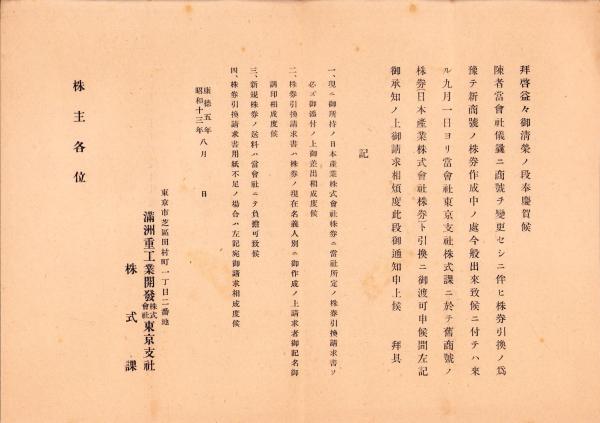 拜啓益々御淸榮ノ段奉慶賀候
陳者當會社儀曩ニ商號ヲ變更セシニ伴ヒ株券引換ノ爲
豫テ新商號ノ株券作成中ノ處今般出來致候ニ付テハ來
ル九月一日ヨリ當會社東京支社株式課ニ於テ舊商號ノ
株券(日本產業株式會社株券)ト引換ニ御渡可申候間左記
御承知ノ上御請求相煩度此段御通知申上候 拜具
記
一、現ニ御所持ノ日本產業株式會社株券ニ當社所定ノ株券引換請求書ヲ
必ズ御添付ノ上御差出相成度候
二、株券引換請求書ハ株券ノ現在名義人別ニ御作成ノ上請求者御記名御
調印相成度候
三、新規株券ノ送料ハ當會社ニテ負擔可致候
四、株券引換請求書用紙不足ノ場合ハ左記宛御請求相成度候
康德五年
昭和十三年八月 日
東京市芝區田村町一丁目二番地
滿洲重工業開發株式會社東京支社
株式課
株主各位